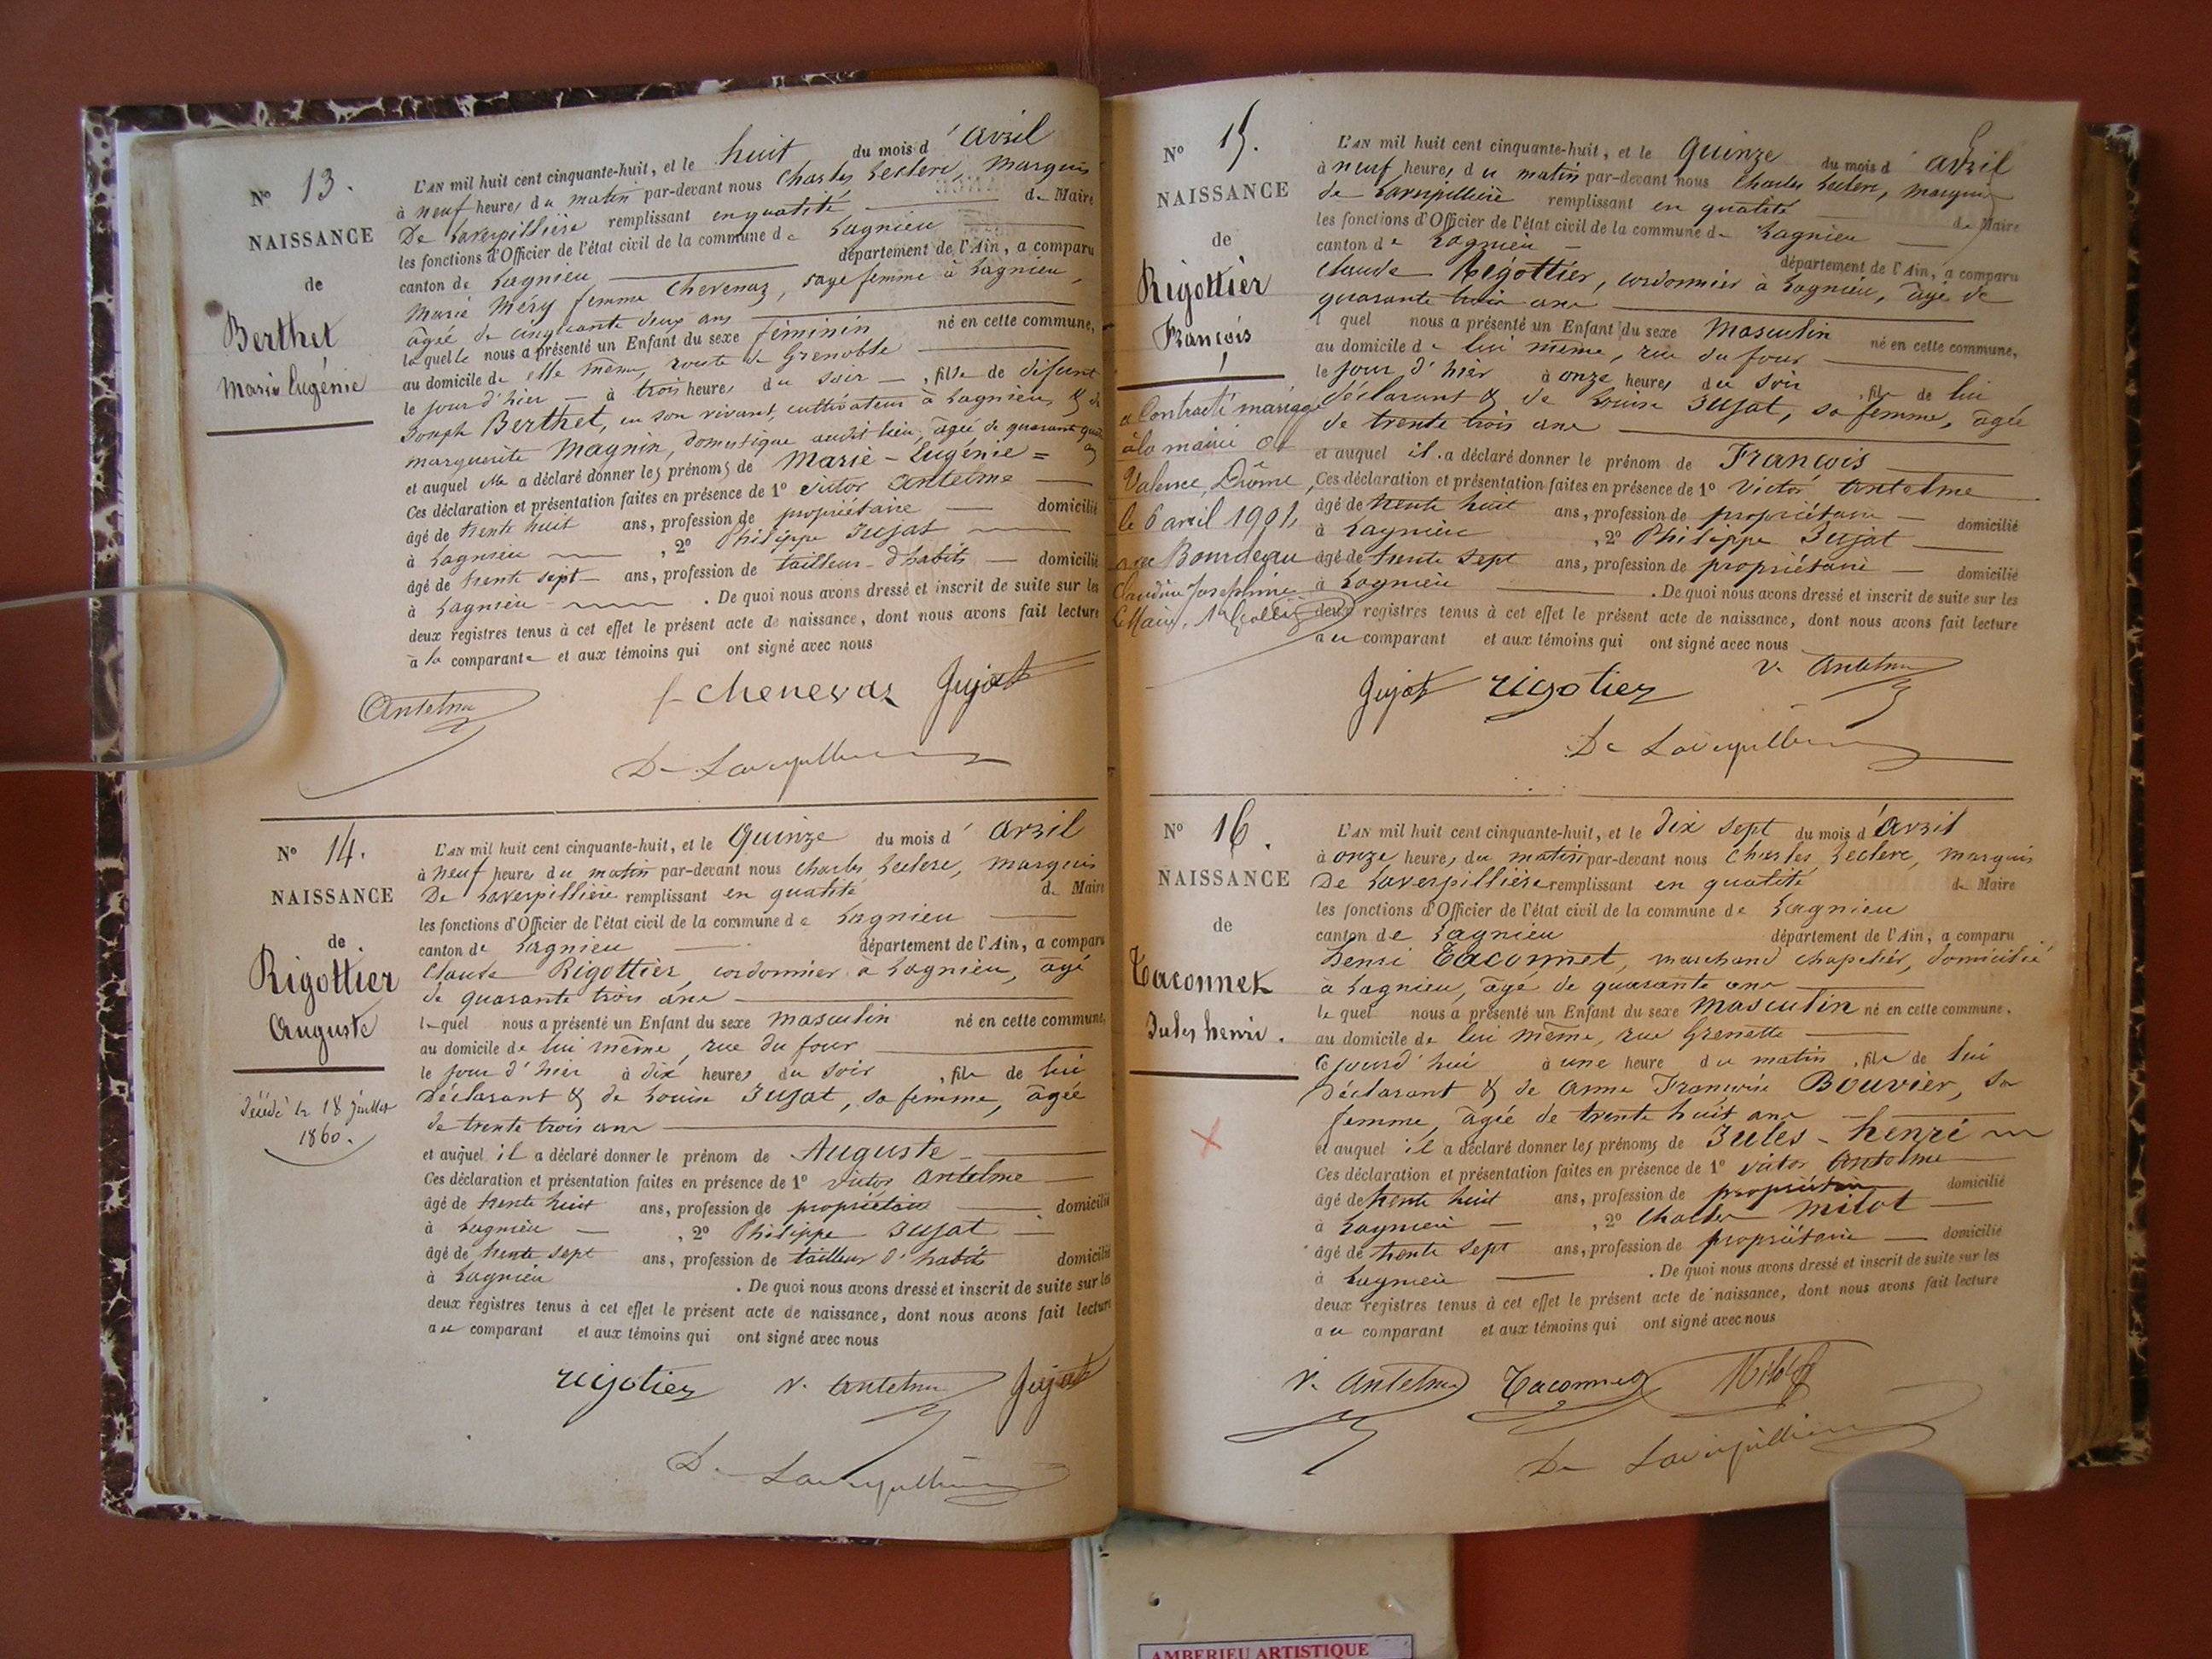 N° 13.
NAISSANCE
de
Berthet
Marie Eugénie
L'AN mil huit cent cinquante-huit, et le huit du mois d'avril
à neuf heures du matin par-devant nous Charles Leclerc, marquis
De Laverpillière remplissant en qualité de Maire
les fonctions d'Officier de l'état civil de la commune de Lagnieu
canton de Lagnieu département de l'Ain, a comparu
Marie Méry femme Chevenaz, sage femme à Lagnieu,
âgée de cinquante deux ans
laquelle nous a présenté un Enfant du sexe féminin né en cette commune,
au domicile de elle même, route de Grenoble
le jour d'hier à trois heures du soir, fille de défunt
Joseph Berthet, en son vivant, cultivateur à Lagnieu, & de
marguerite Magnin, domestique audit lieu, âgée de quarante
et auquel elle a déclaré donner les prénoms de Marie-Eugénie =
Ces déclaration et présentation faites en présence de 1° Victor Antelme
âgé de trente huit ans, profession de propriétaire domicilié
à Lagnieu, 2° Philippe Jujat
âgé de trente sept ans, profession de tailleur d'habits domicilié
à Lagnieu. De quoi nous avons dressé et inscrit de suite sur les
deux registres tenus à cet effet le présent acte de naissance, dont nous avons fait lecture
à la comparante et aux témoins qui ont signé avec nous
Antelme f. chenevaz Jujat
De Laverpillière
N° 14.
NAISSANCE
de
Rigottier
Auguste
Décédé le 18 juillet
1860.
L'AN mil huit cent cinquante-huit, et le Quinze du mois d'avril
à neuf heures du matin par-devant nous Charles Leclerc, marquis
De Laverpillière remplissant en qualité de Maire
les fonctions d'Officier de l'état civil de la commune de Lagnieu
canton de Lagnieu département de l'Ain, a comparu
Claude Rigottier, cordonnier à Lagnieu, âgé
de quarante trois ans
lequel nous a présenté un Enfant du sexe masculin né en cette commune,
au domicile de lui même, rue du four
le jour d'hier à dix heures du soir, fils de lui
Déclarant & de Louise Jujat, sa femme, âgée
de trente trois ans
et auquel il a déclaré donner le prénom de Auguste
Ces déclaration et présentation faites en présence de 1° Victor Antelme
âgé de trente huit ans, profession de propriétaire domicilié
à Lagnieu, 2° Philippe Jujat
âgé de trente sept ans, profession de tailleur d'habits domicilié
à Lagnieu. De quoi nous avons dressé et inscrit de suite sur les
deux registres tenus à cet effet le présent acte de naissance, dont nous avons fait lecture
au comparant et aux témoins qui ont signé avec nous
rigotier V. Antelme Jujat
De Laverpillière
N° 15.
NAISSANCE
de
Rigottier
François
a Contracté mariage
à la mairie de
Valence, Drôme,
le 6 avril 1901,
avec Bourdeau
Claudine Josephine
Le Maire,
L'AN mil huit cent cinquante-huit, et le Quinze du mois d'avril
à neuf heures du matin par-devant nous Charles Leclerc, marquis
de Laverpillière remplissant en qualité de Maire
les fonctions d'Officier de l'état civil de la commune de Lagnieu
canton de Lagnieu département de l'Ain, a comparu
Claude Rigottier, cordonnier à Lagnieu, âgé de
quarante trois ans
lequel nous a présenté un Enfant du sexe Masculin né en cette commune,
au domicile de lui même, rue du four
le jour d'hier à onze heures du soir, fils de lui
déclarant & de Louise Jujat, sa femme, âgée
de trente trois ans
et auquel il a déclaré donner le prénom de François
Ces déclaration et présentation faites en présence de 1° Victor Antelme
âgé de trente huit ans, profession de propriétaire domicilié
à Lagnieu, 2° Philippe Jujat
âgé de trente sept ans, profession de propriétaire domicilié
à Lagnieu. De quoi nous avons dressé et inscrit de suite sur les
deux registres tenus à cet effet le présent acte de naissance, dont nous avons fait lecture
au comparant et aux témoins qui ont signé avec nous
Jujat rigotier V. Antelme
De Laverpillière
N° 16.
NAISSANCE
de
Taconnet
Jules henri.
L'AN mil huit cent cinquante-huit, et le dix sept du mois d'avril
à onze heures du matin par-devant nous Charles Leclerc, marquis
De Laverpillière remplissant en qualité de Maire
les fonctions d'Officier de l'état civil de la commune de Lagnieu
canton de Lagnieu département de l'Ain, a comparu
henri Taconnet, marchand chapelier, domicilié
à Lagnieu, âgé de quarante ans
lequel nous a présenté un Enfant du sexe masculin né en cette commune.
au domicile de lui même, rue Grenette
Cejourd'hui à une heure du matin, fils de lui
Déclarant & de Anne Françoise Bouvier, sa
femme, âgée de trente huit ans
et auquel il a déclaré donner les prénoms de Jules-henri
Ces déclaration et présentation faites en présence de 1° Victor Antelme
âgé de trente huit ans, profession de propriétaire domicilié
à Lagnieu, 2° Charles Milot
âgé de trente sept ans, profession de propriétaire domicilié
à Lagnieu. De quoi nous avons dressé et inscrit de suite sur les
deux registres tenus à cet effet le présent acte de naissance, dont nous avons fait lecture
au comparant et aux témoins qui ont signé avec nous
V. Antelme Taconnet Milot
De Laverpillière
AMBERIEU ARTISTIQUE